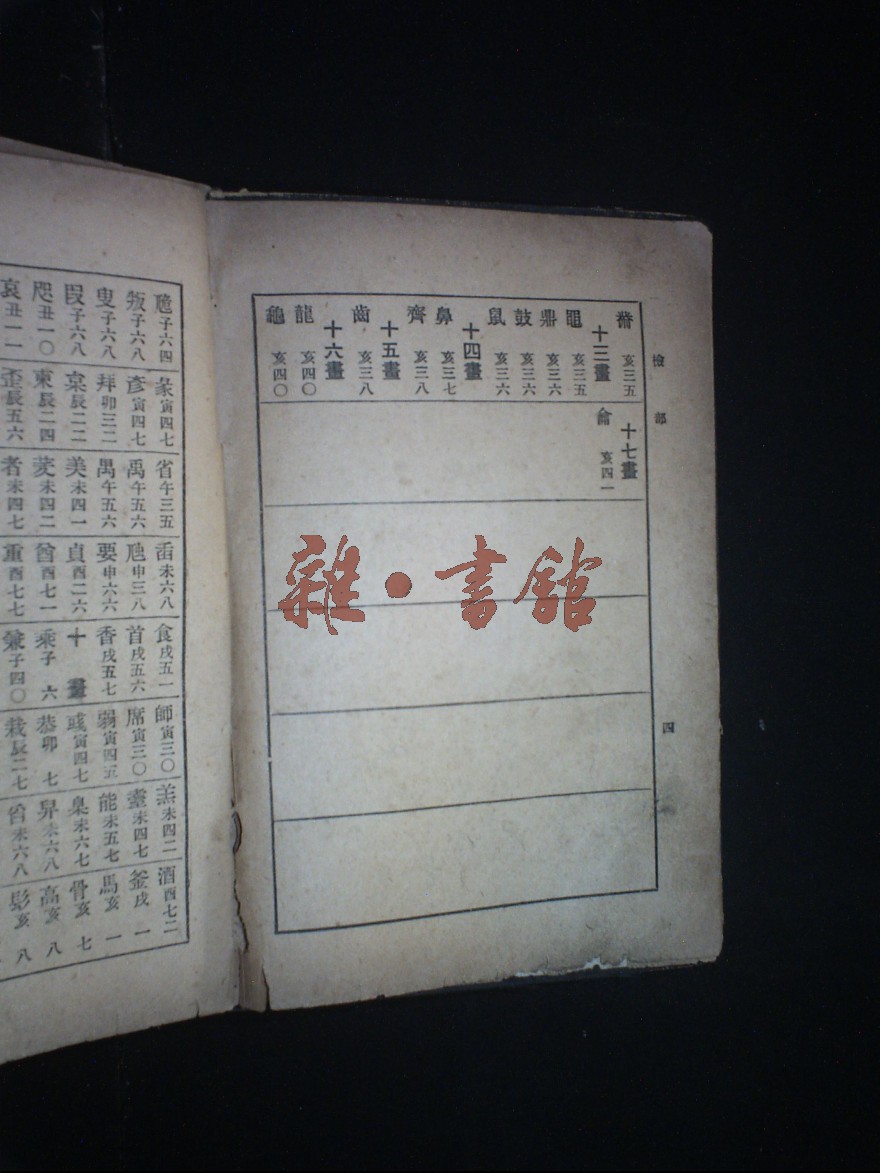 檢部
黹 亥三五
十三畫
黽 亥三五
鼎 亥三六
鼓 亥三六
鼠 亥三六
十四畫
鼻 亥三七
齊 亥三八
十五畫
齒 亥三八
十六畫
龍 亥四〇
龜 亥四〇
十七畫
龠 亥四一
四
雜·書館
子六四
叛子六八
叟子六八
子六八
咫丑一〇
哀丑一一
彖寅四七
彥寅四七
拜卯三二
辰二二
東辰二四
歪辰五六
省午三五
禹午五六
禺午五六
美未四一
未四二
者未四七
未六八
申三八
要申六六
貞酉二六
酋酉七一
重酉七七
食戌五一
首戌五六
香戌五七
十畫
乘子六
兼子四〇
師寅三〇
席寅三〇
弱寅四五
彧寅四七
恭卯七
栽辰二七
羔未四二
未四七
能未五七
臬未六七
舁未六八
未六八
酒酉七二
釜戌一
馬亥一
骨亥七
高亥八
髟亥八